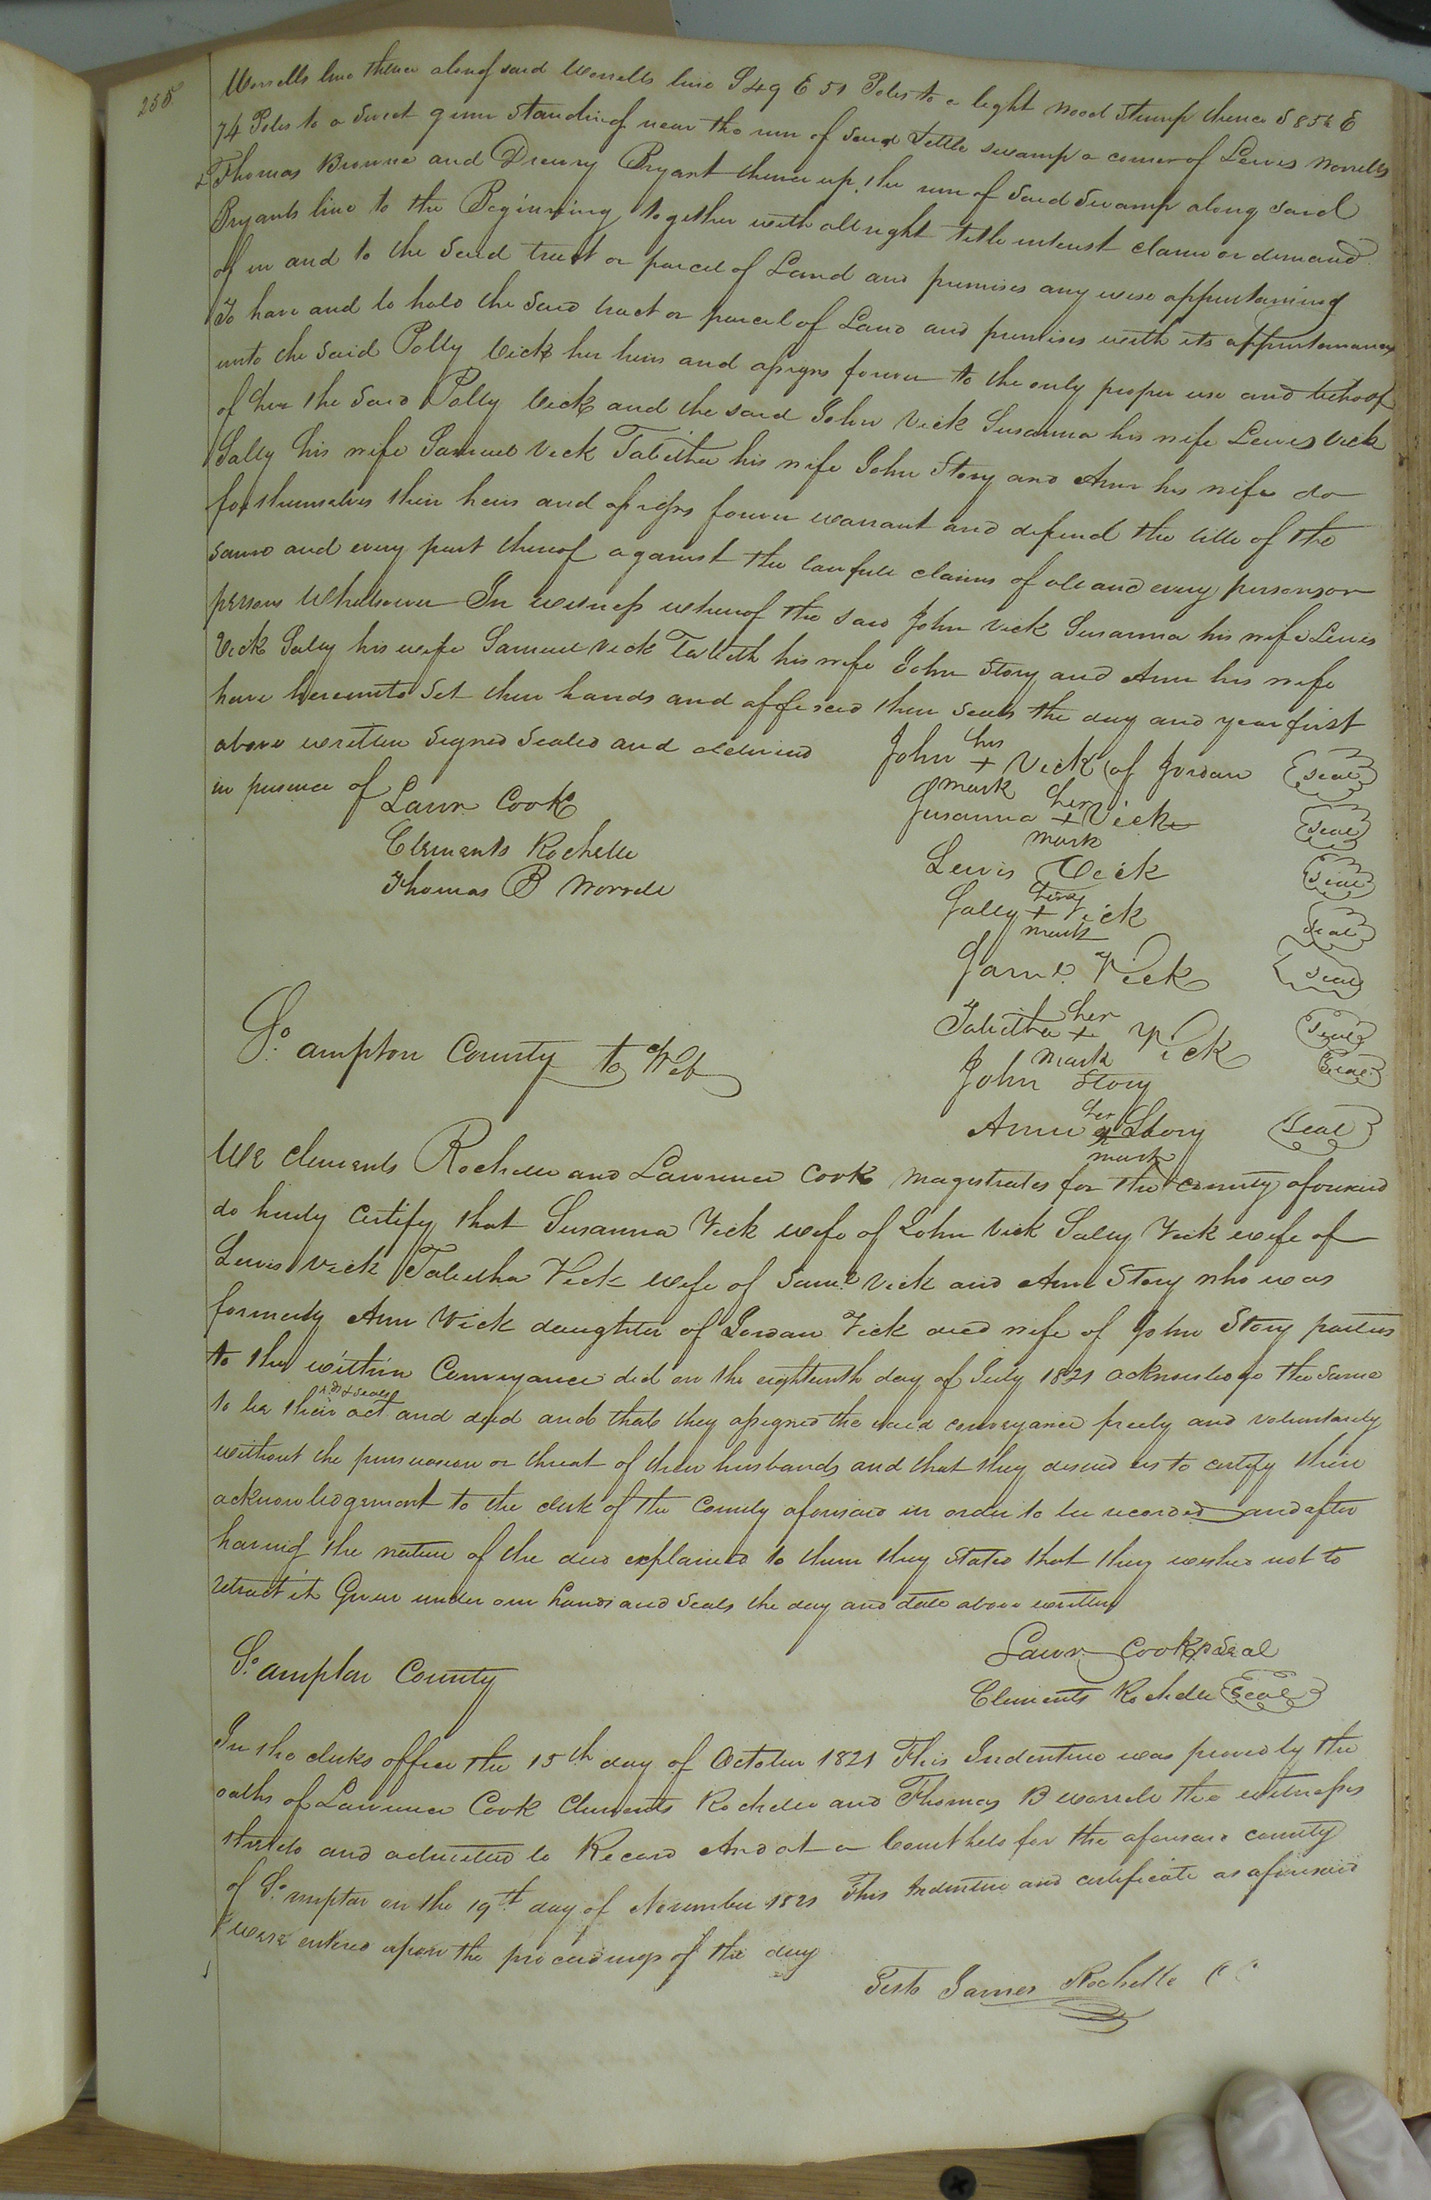 255
Worrells line thence along said Worrells line S 49 E 51 Poles to a light wood Stump thence S 85½ E
74 Poles to a Sweet gum Standing near the run of said Tettle swamp a corner of Lewis Worrells
& Thomas Browne and Drewry Bryant thence up the run of said Swamp along said
Bryants line to the Beginning together with all right title interest claim or demand
of in and to the said tract or parcel of Land and premises any wise appertaining
To have and to hold the said tract or parcel of Land and premises with its appurtenances
unto the said Polly Vick her heirs and assigns forever to the only proper use and behoof
of her the said Polly Vick and the said John Vick Susanna his wife Lewis Vick
Sally his wife Samuel Vick Tabitha his wife John Story and Ann his wife do
for themselves their heirs and assigns forever warrant and defend the title of the
same and every part thereof against the lawfull claims of all and every person or
persons Whatsoever In witness whereof the said John Vick Susanna his wife Lewis
Vick Sally his wife Samuel Vick Tabith his wife John Story and Ann his wife
have hereunto Set their hands and affixed their seals the day and year first
above written Signed Sealed and delivered
in presence of
Lawr Cook
Clements Rochelle
Thomas B Worrell
John his + mark Vick (of Jordan seal
Susanna her + mark Vick seal
Lewis Vick seal
Sally her + mark Vick seal
Saml. Vick seal
Tabitha her + mark Vick seal
John Story seal
Ann her + mark Story seal
So. ampton County to Wit
We Clements Rochelle and Lawrence Cook magistrates for the County aforesaid
do hereby Certify that Susanna Vick wife of John Vick Sally Vick wife of
Lewis Vick Tabitha Vick wife of Saml Vick and Ann Story who was
formerly Ann Vick daughter of Jordan Vick decd wife of John Story parties
to the within Conveyance did on the eighteenth day of July 1821 acknowledge the same
to be their act and deed and that they assigned the said conveyance freely and voluntarily
without the persuasion or threat of their husbands and that they desired us to certify their
acknowledgement to the clerk of the County aforesaid in order to be recorded and after
having the nature of the deed explained to them they stated that they wished not to
retract it Given under our hands and Seals the day and date above written
Lawr Cook Seal
Clements Rochelle Seal
So. ampton County
In the clerks office the 15th day of October 1821 This Indenture was proved by the
oaths of Lawrence Cook Clements Rochelle and Thomas B Worrell the witnesses
thereto and admitted to Record And at a Court held for the aforesaid county
of So. ampton on the 19th day of November 1821 This Indenture and certificate as aforesaid
were entered upon the proceedings of the day
Teste James Rochelle CC